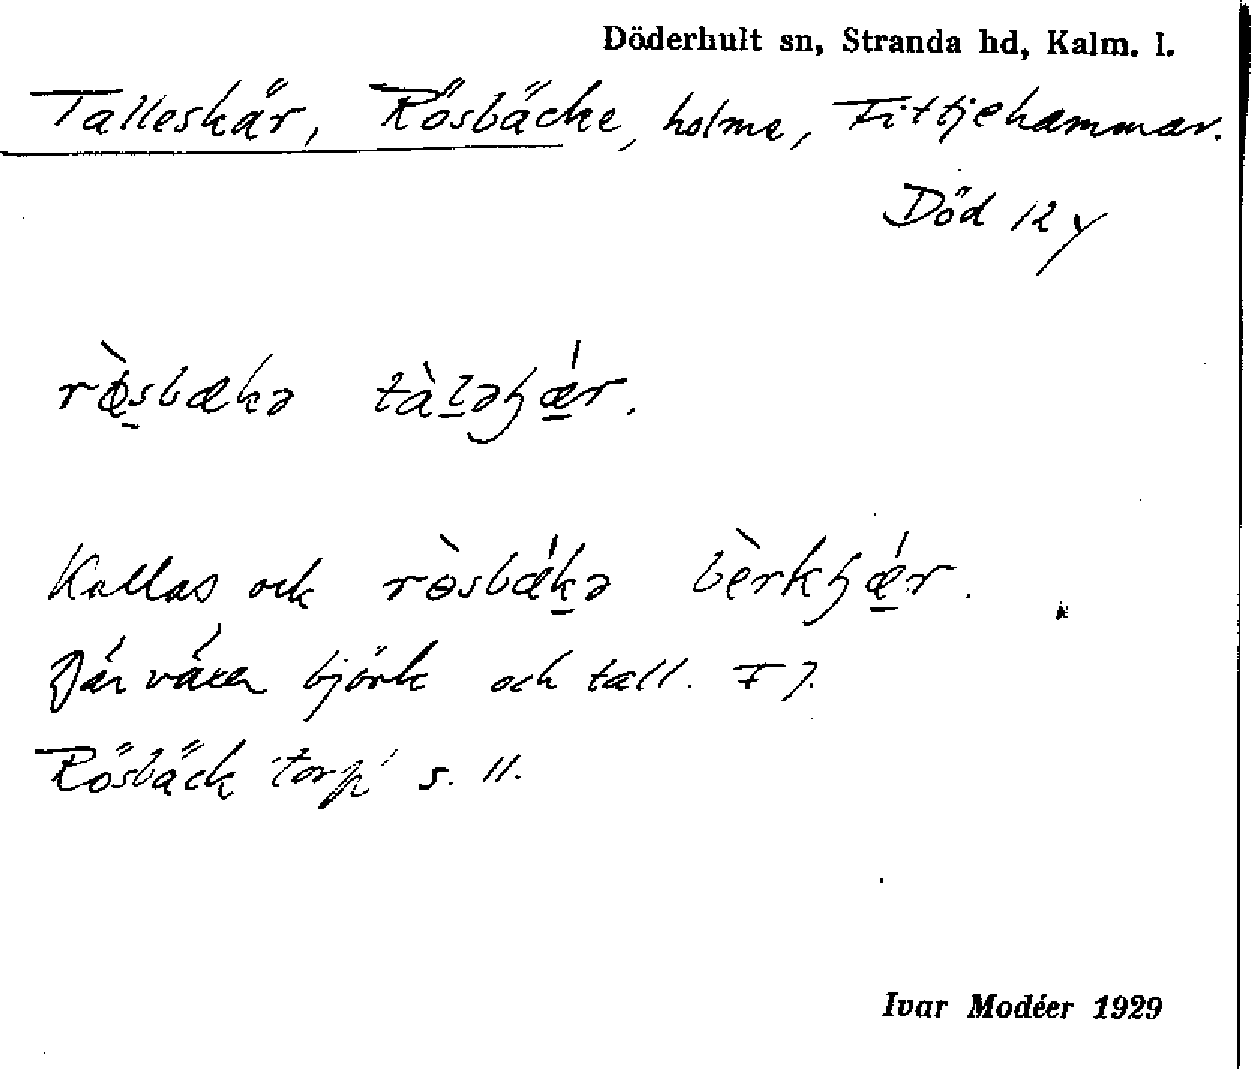 Döderhult sn, Stranda hd, Kalm. l.
Talleskär, Rösbäcke, holme, Fittjehammar.
Död 12 y
rø̀sbækə tàləɧǽr.
Kallas ock røsbǽkə bèrkɧǽr.
Där växer björk och tall. F J.
Rösbäck 'torp' s. 11.
Ivar Modéer 1929